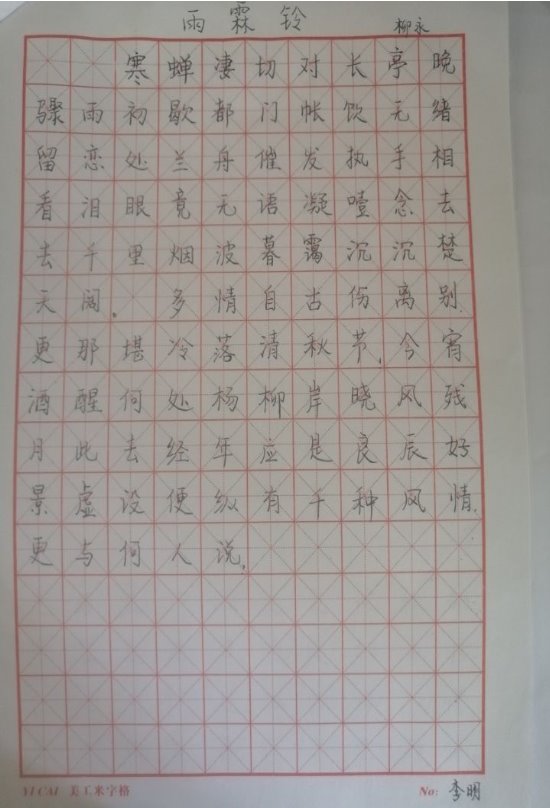 雨霖铃
柳永
寒蝉凄切对长亭晚
骤雨初歇都门帐饮无绪
留恋处兰舟催发执手相
看泪眼竟无语凝噎念去
去千里烟波暮霭沉沉楚
天阔。多情自古伤离别
更那堪冷落清秋节,今宵
酒醒何处杨柳岸晓风残
月此去经年应是良辰好
景虚设便纵有千种风情.
更与何人说.
YI CAI 美工米字格 No: 李明